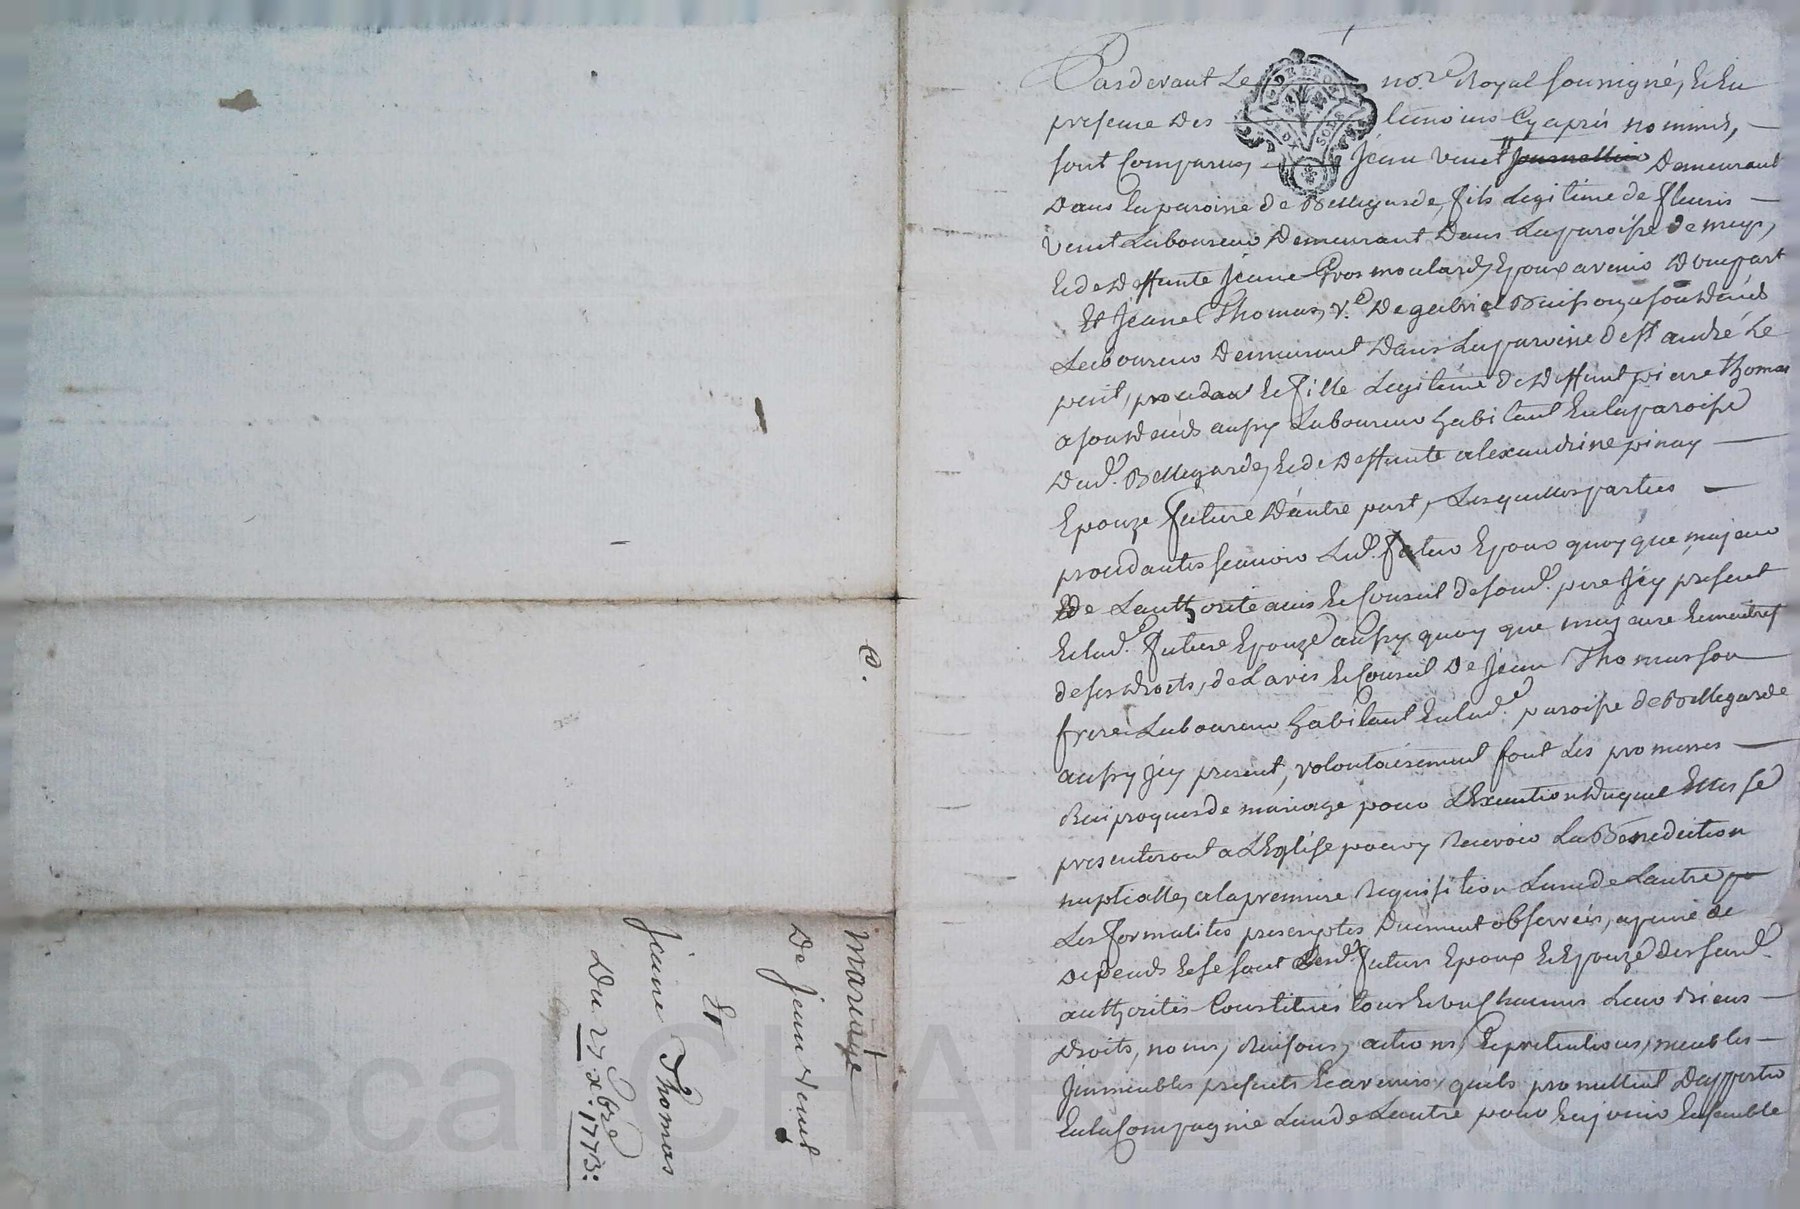 mariage
De jean venet
Et
jeane Thomas
Du 27 xbre 1773:
@.
Pardevant Le no.re Royal soussigné, & En
presence Des temoins Cyaprés nommés,
sont Comparus, Jean venet Demeurant
Dans la paroisse de Bellegarde, fils Legitime de fleuris
venet Laboureur Demeurant Dans La paroisse de meys,
Et de Deffunte Jeane Gros moulard, Epoux avenir D'une part
Et Jeane Thomas, v.e De gabriel Buisson, a son Déceds
Laboureur Demeurant Dans La paroisse de st andré Le
puit, procedant Et fille Legitime De Deffunt pierre thomas
a son Déceds aussy Laboureur habitant En la paroisse
Dud. Bellegarde, Et de Deffunte alexandrine pinay
Epouze future D'autre part, Lesquelles parties
procedantes scavoir Led. futur Epoux quoy que majeur
De L'authorité avis Et Conseil de soud. pere Jcy present
Et lad. future Epouze aussy quoy que majeure Et maitresse
de ses droits, de L'avis Et Conseil De Jean Thomas son
frere Laboureur habitant En lad. paroisse de Bellegarde
aussy Jcy present, volontairement font Les promesses
Reciproques de mariage pour L'Execution Duquel Elles se
presenteront a L'Eglise pour y Recevoir La Benediction
nuptialle, a la premiere Requisition L'une de L'autre
Les formalités prescriptes Duement observées, a peine de
Depends Et se sont Lesd. futurs Epoux Et Epouze Des susd.
authorités Constitués tous Et uns Chacuns Leur Biens
Droits, noms, Raisons, actions, Et pretentions, meubles
Jmmeubles presents Et avenirs, quils promettent D'apporter
En la Compagnie L'un de L'autre pour En jouir Ensemble
Pascal CHAREYRON